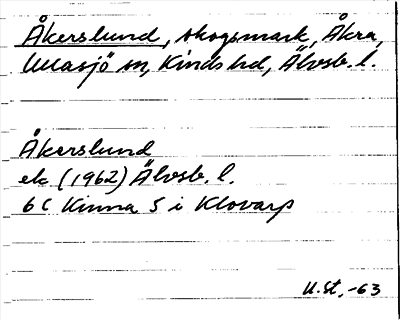 Åkerslund, skogsmark, Åkra,
Ullasjö sn, Kinds hd, Älvsb. l.
Åkerslund
ek (1962) Älvsb. l.
6C Kinna S i Klovarp
U.St. -63